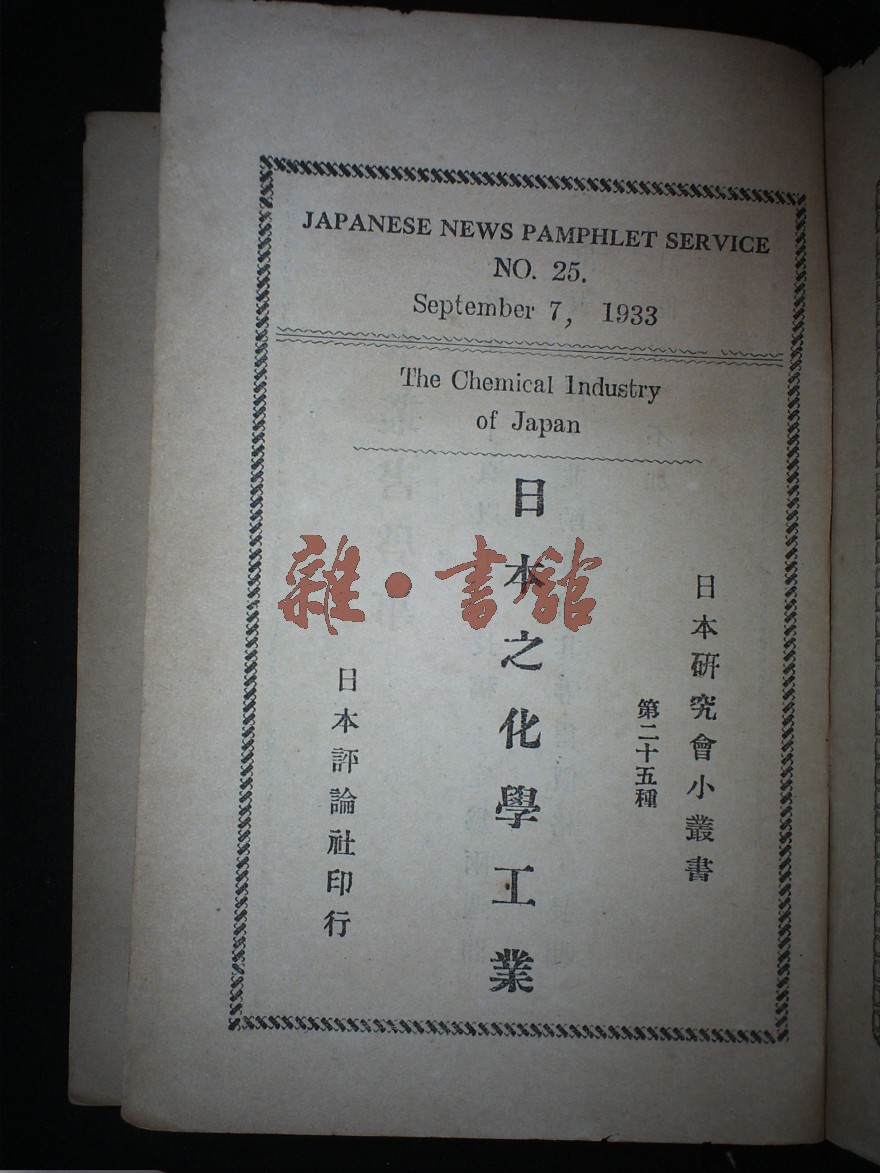 JAPANESE NEWS PAMPHLET SERVICE
NO. 25.
September 7, 1933
The Chemical Industry
of Japan
日本研究會小叢書
第二十五種
日本之化學工業
日本評論社印行
雜·書館